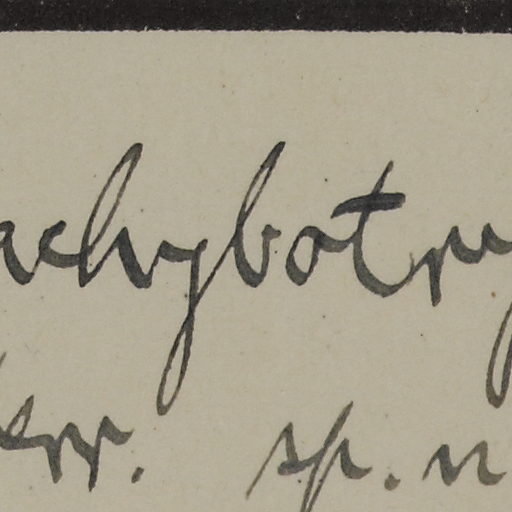 achybotry
err. sp. n